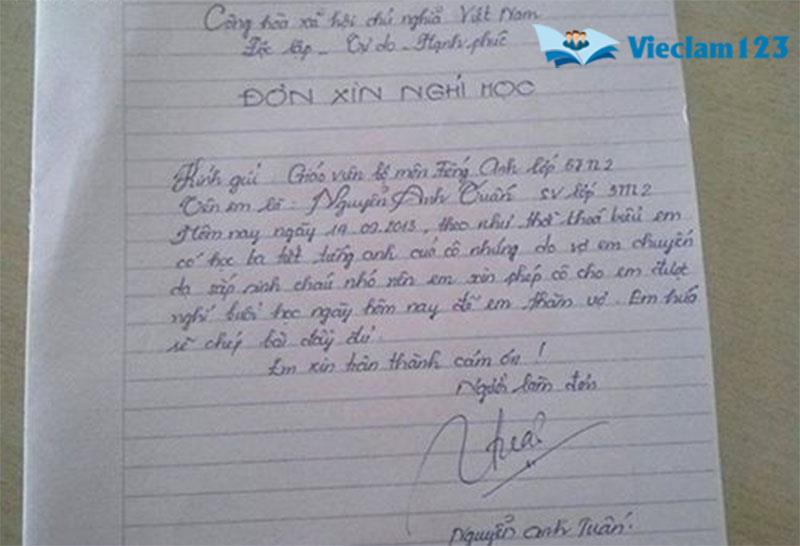 Vieclam123
Cộng hòa xã hội chủ nghĩa Việt Nam
Độc lập - Tự do - Hạnh phúc
ĐƠN XIN NGHỈ HỌC
Kính gửi: Giáo viên bộ môn Tiếng Anh lớp
Tên em là: Nguyễn Anh Tuấn SV lớp
Hôm nay ngày 19.09.2013, theo như thời khoá biểu em
có học ba tiết tiếng anh cuả cô nhưng do vợ em chuyển
dạ sắp sinh cháu nhỏ nên em xin phép cô cho em được
nghỉ buổi học ngày hôm nay để em thăm vợ. Em hứa
sẽ chép bài đầy đủ.
Em xin chân thành cám ơn!
Người làm đơn
Nguyễn Anh Tuấn.